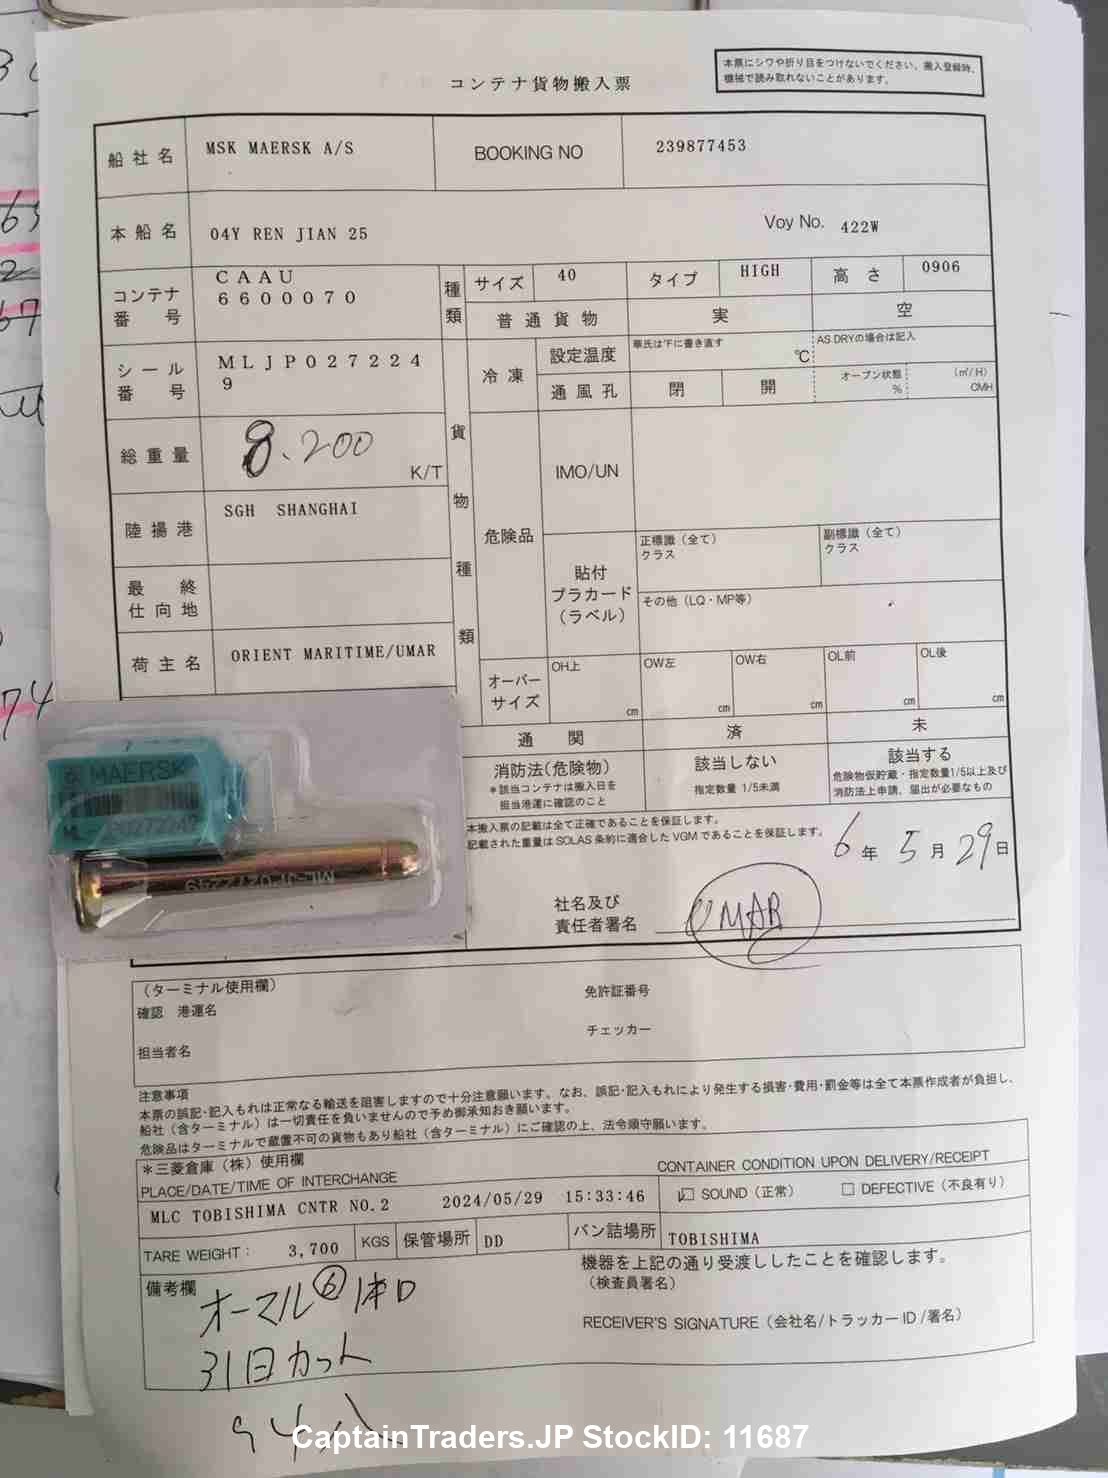 コンテナ貨物搬入票
本票にシワや折り目をつけないでください。搬入登録時、
機械で読み取れないことがあります。
船社名 MSK MAERSK A/S BOOKING NO 239877453
本船名 04Y REN JIAN 25 Voy No. 422W
コンテナ番号 CAAU
6600070
種類 サイズ 40 タイプ HIGH 高さ 0906
普通貨物 実 空
シール番号 MLJP027224
9
貨物種類
冷凍 設定温度 華氏は下に書き直す ℃ AS DRYの場合は記入
通風孔 閉 開 オープン状態 % (㎥/H) CMH
総重量 8.200 K/T
危険品 IMO/UN
陸揚港 SGH SHANGHAI
貼付
プラカード
(ラベル)
正標識(全て)
クラス
副標識(全て)
クラス
その他(LQ・MP等)
最終
仕向地
荷主名 ORIENT MARITIME/UMAR
オーバー
サイズ
OH上 cm OW左 cm OW右 cm OL前 cm OL後 cm
通関 済 未
消防法(危険物)
*該当コンテナは搬入日を
担当港運に確認のこと
該当しない
指定数量 1/5未満
該当する
危険物仮貯蔵・指定数量1/5以上及び
消防法上申請、届出が必要なもの
MAERSK
ML-JP0272249
本搬入票の記載は全て正確であることを保証します。
記載された重量はSOLAS条約に適合したVGMであることを保証します。
6年5月29日
社名及び
責任者署名 UMAR
(ターミナル使用欄)
確認 港運名
免許証番号
チェッカー
担当者名
注意事項
本票の誤記・記入もれは正常なる輸送を阻害しますので十分注意願います。なお、誤記・記入もれにより発生する損害・費用・罰金等は全て本票作成者が負担し、
船社(含ターミナル)は一切責任を負いませんので予め御承知おき願います。
危険品はターミナルで蔵置不可の貨物もあり船社(含ターミナル)にご確認の上、法令順守願います。
*三菱倉庫(株)使用欄
PLACE/DATE/TIME OF INTERCHANGE
CONTAINER CONDITION UPON DELIVERY/RECEIPT
MLC TOBISHIMA CNTR NO.2 2024/05/29 15:33:46
SOUND(正常) DEFECTIVE(不良有り)
TARE WEIGHT: 3,700 KGS 保管場所 DD バン詰場所 TOBISHIMA
備考欄
オーマル⑥
31日カット
機器を上記の通り受渡ししたことを確認します。
(検査員署名)
RECEIVER'S SIGNATURE(会社名/トラッカーID/署名)
CaptainTraders.JP StockID: 11687